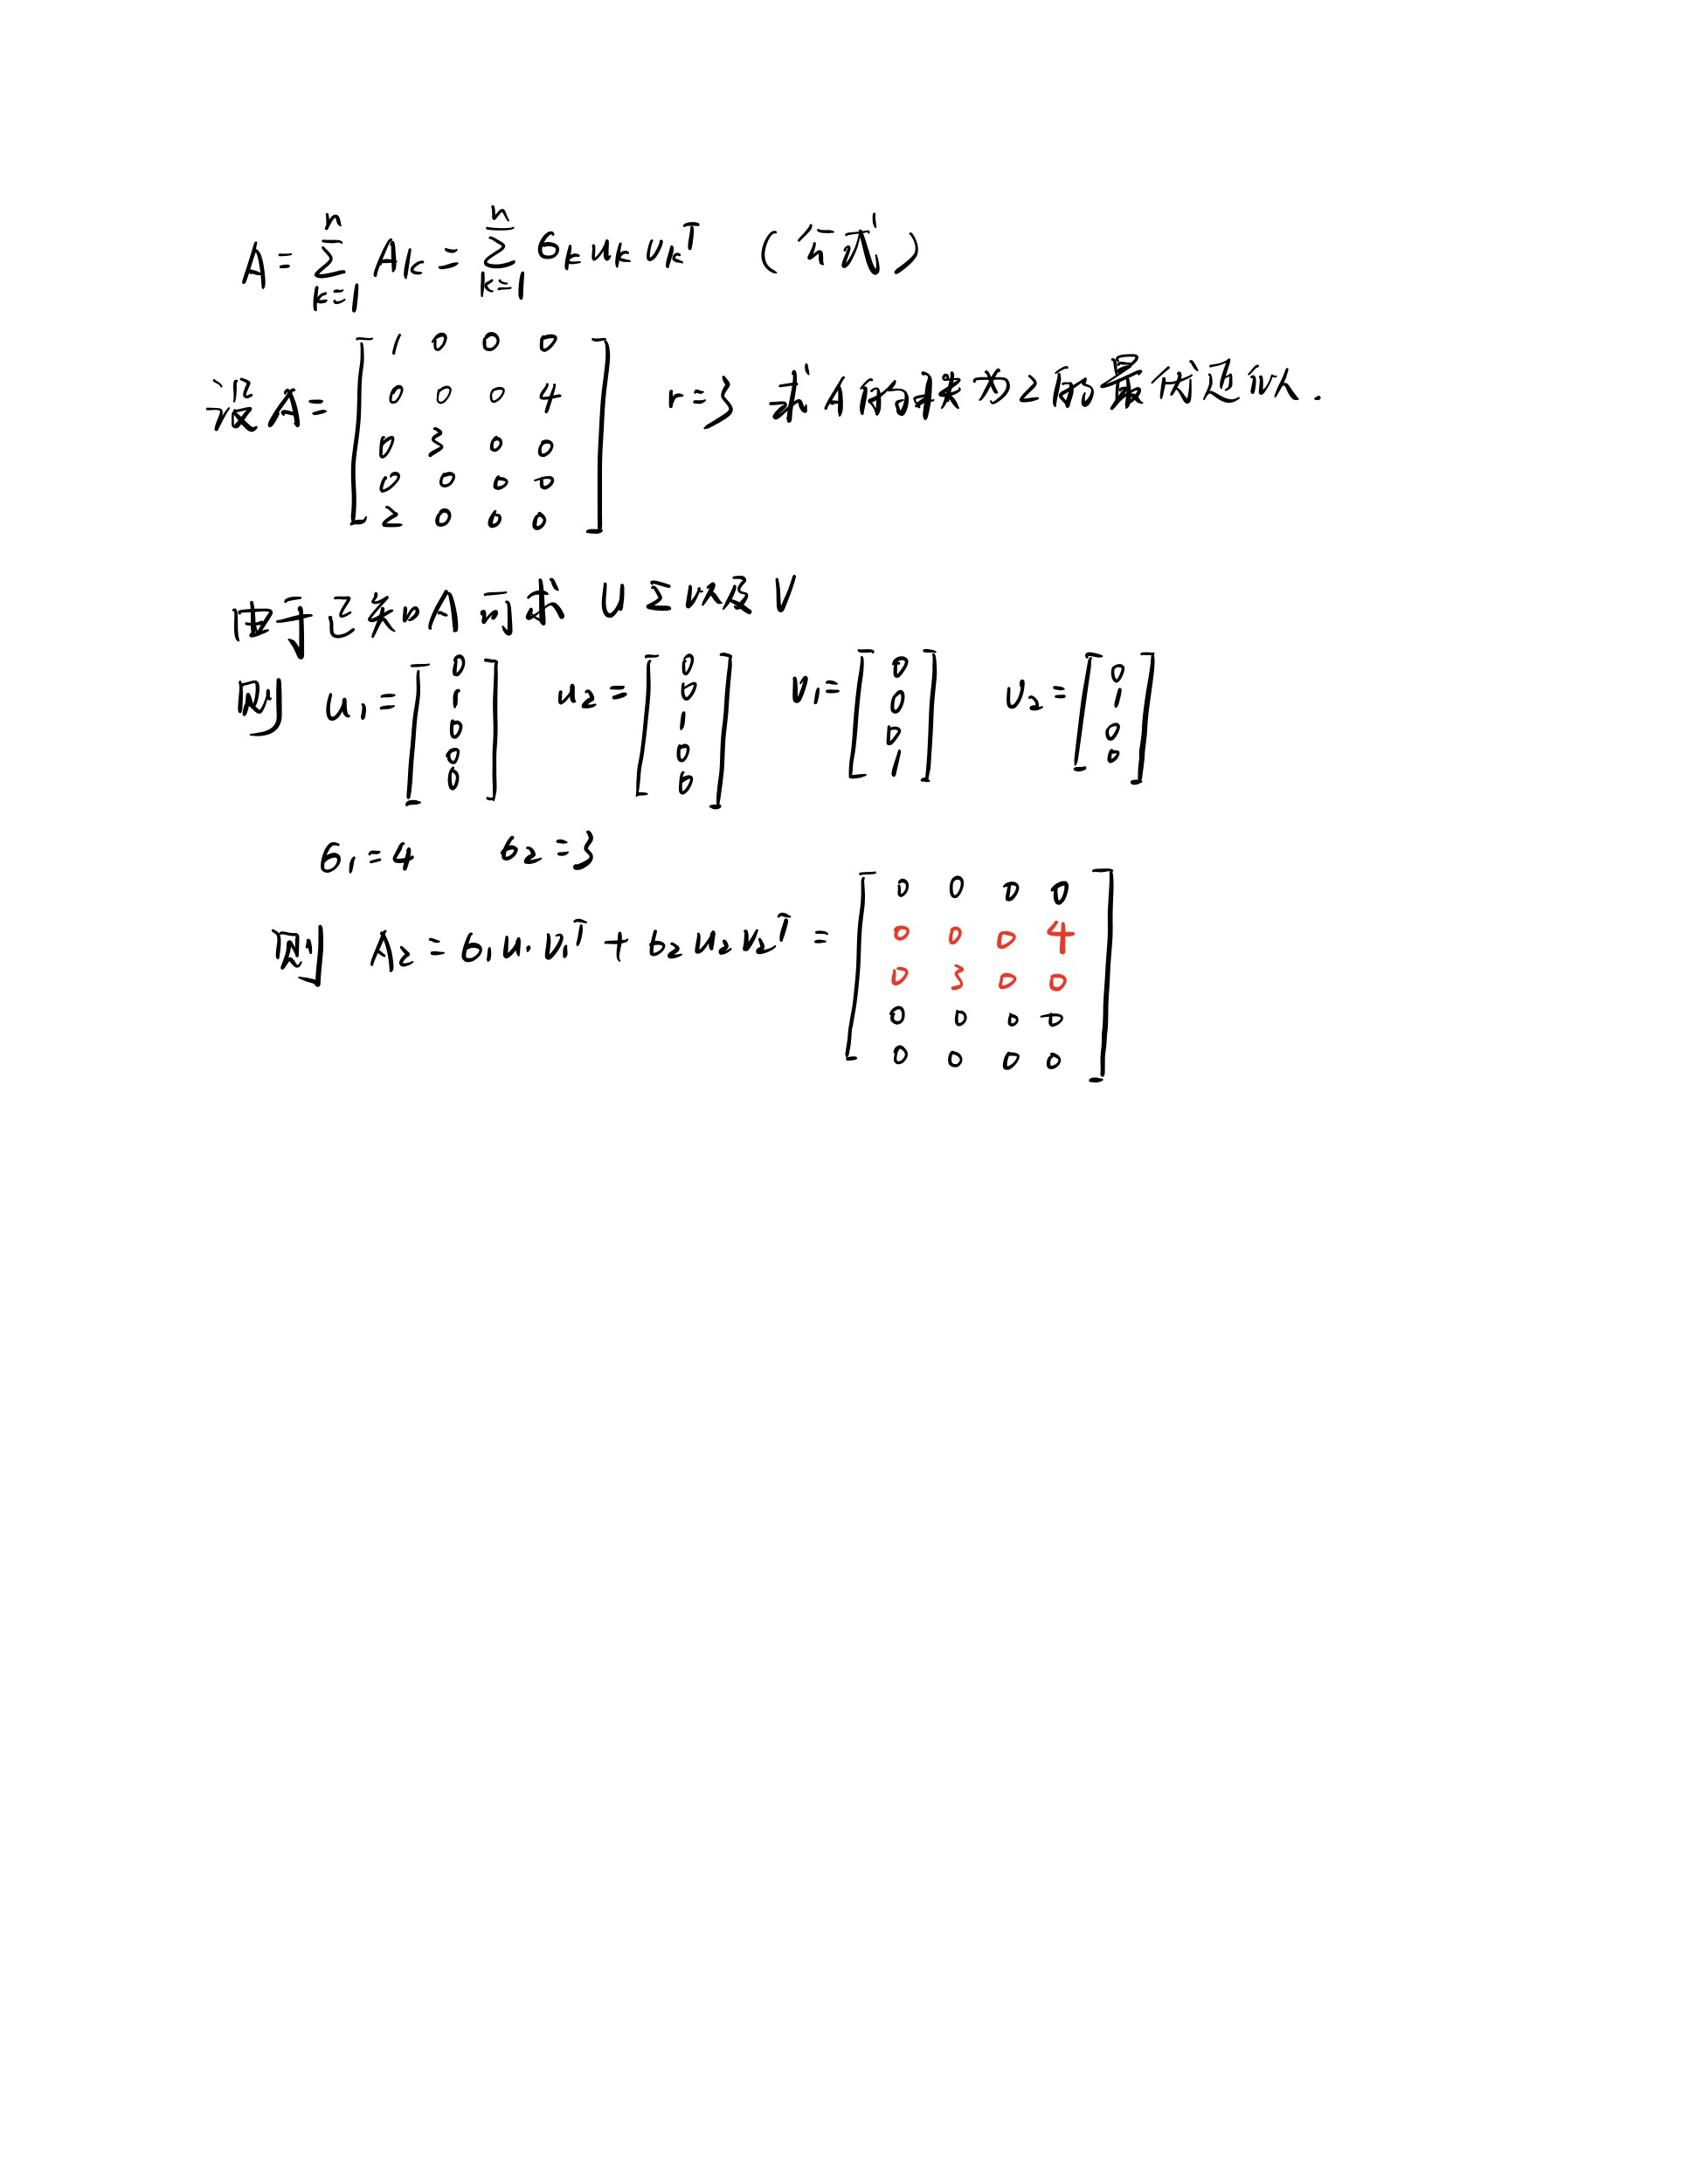 A = Σ_{k=1}^{n} A_k = Σ_{k=1}^{n} σ_k u_k v_k^T (公式)
设 A = [1 0 0 0; 0 0 0 4; 0 3 0 0; 0 0 0 0; 2 0 0 0] r=3 求A的秩为2的最优近似.
由于已知A 可求 U Σ 以及 V
则 u₁ = [0; 1; 0; 0; 0] u₂ = [0; 0; 1; 0; 0] v₁ = [0; 0; 0; 1] v₂ = [0; 1; 0; 0]
σ₁ = 4 σ₂ = 3
则 A₂ = σ₁u₁v₁^T + σ₂u₂v₂^T = [0 0 0 0; 0 0 0 4; 0 3 0 0; 0 0 0 0; 0 0 0 0]